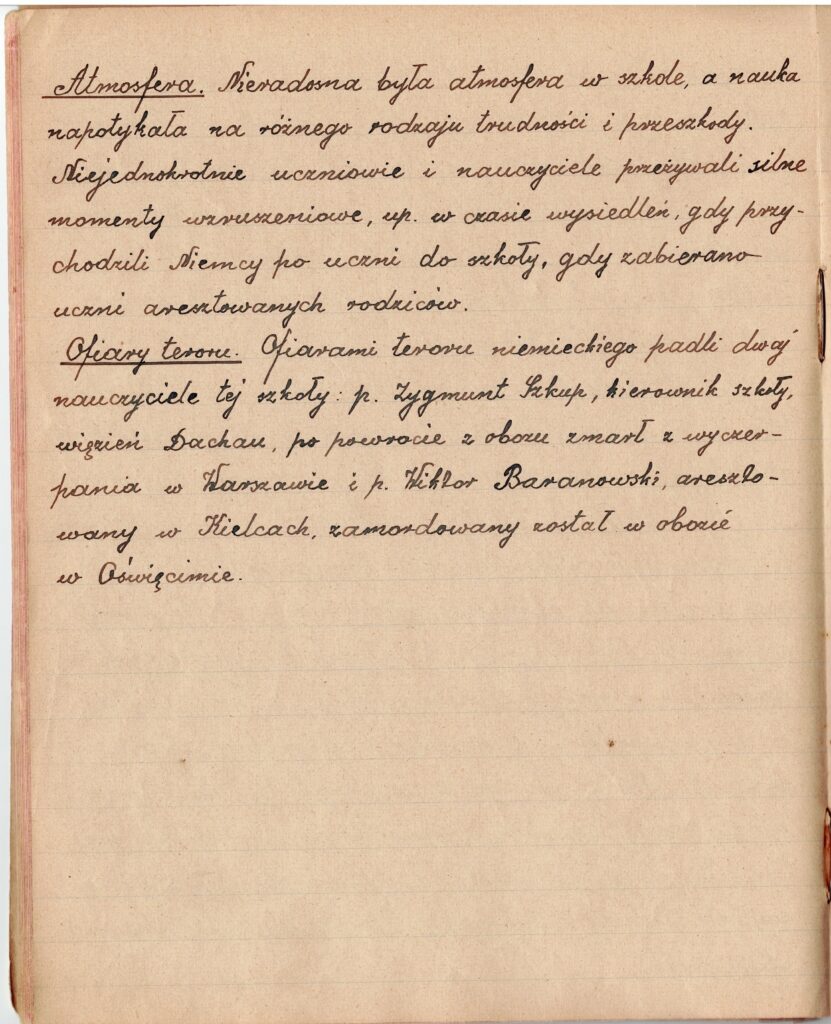 Atmosfera. Nieradosna była atmosfera w szkole, a nauka
napotykała na różnego rodzaju trudności i przeszkody.
Niejednokrotnie uczniowie i nauczyciele przeżywali silne
momenty wzruszeniowe, np. w czasie wysiedleń, gdy przy-
chodzili Niemcy po uczni do szkoły, gdy zabierano
uczni aresztowanych rodziców.
Ofiary teroru. Ofiarami teroru niemieckiego padli dwaj
nauczyciele tej szkoły: p. Zygmunt Szkup, kierownik szkoły,
więzień Dachau, po powrocie z obozu zmarł z wyczer-
pania w Warszawie i p. Wiktor Baranowski, areszto-
wany w Kielcach, zamordowany został w obozie
w Oświęcimie.